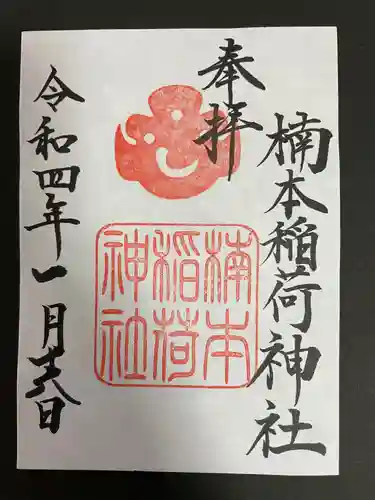 奉拝
楠本稲荷神社
楠本
稲荷
神社
令和四年一月十八日